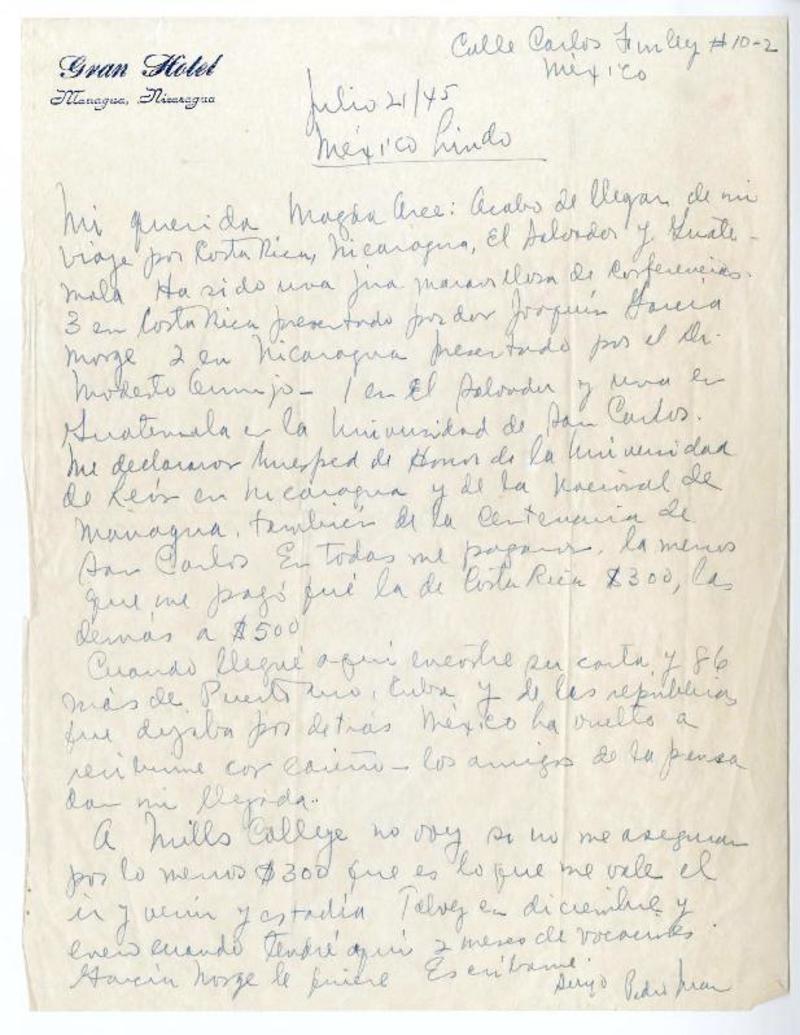 Gran Hotel
Managua, Nicaragua
Calle Carlos Finley #10-2
México
Julio 21/45
México Lindo
Mi querida Magda Arce: Acabo de llegar de mi
viaje por Costa Rica, Nicaragua, El Salvador y Guate-
mala Ha sido una jira maravillosa de conferencias.
3 en Costa Rica presentado por don Joaquín García
Monge 2 en Nicaragua presentado por el Dr.
Modesto Armijo - 1 en El Salvador y una en
Guatemala en la Universidad de San Carlos.
Me declararon huesped de Honor de la Universidad
de León en Nicaragua y de la Nacional de
Managua, también de la Centenaria de
San Carlos En todas me pagaron, la menos
que me pagó fué la de Costa Rica $300, las
demás a $500
Cuando llegué aquí encontré su carta y 86
más de Puerto Rico, Cuba y de las repúblicas
que dejaba por detrás México ha vuelto a
recibirme con cariño - los amigos de la prensa
dan mi llegada.
A Mills College no voy si no me aseguran
por lo menos $300 que es lo que me vale el
ir y venir y estadía Talvez en diciembre y
enero cuando tendré aquí 2 meses de vacaciones.
García Monge le quiere Escríbame.
Pedro Juan